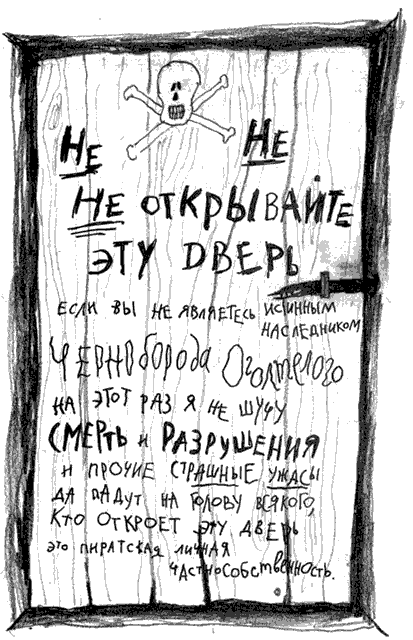 НЕ НЕ
НЕ ОТКРЫВАЙТЕ
ЭТУ ДВЕРЬ
ЕСЛИ ВЫ НЕ ЯВЛЯЕТЕСЬ ИСТИННЫМ
НАСЛЕДНИКОМ
ЧЕРНОБОРОДА ОГОЛТЕЛОГО
НА ЭТОТ РАЗ Я НЕ ШУЧУ
СМЕРТЬ и РАЗРУШЕНИЯ
И ПРОЧИЕ СТРАШНЫЕ УЖАСЫ
ДА ПАДУТ НА ГОЛОВУ ВСЯКОГО,
КТО ОТКРОЕТ ЭТУ ДВЕРЬ
ЭТО ПИРАТСКАЯ ЛИЧНАЯ
ЧАСТНОСОБСТВЕННОСТЬ.